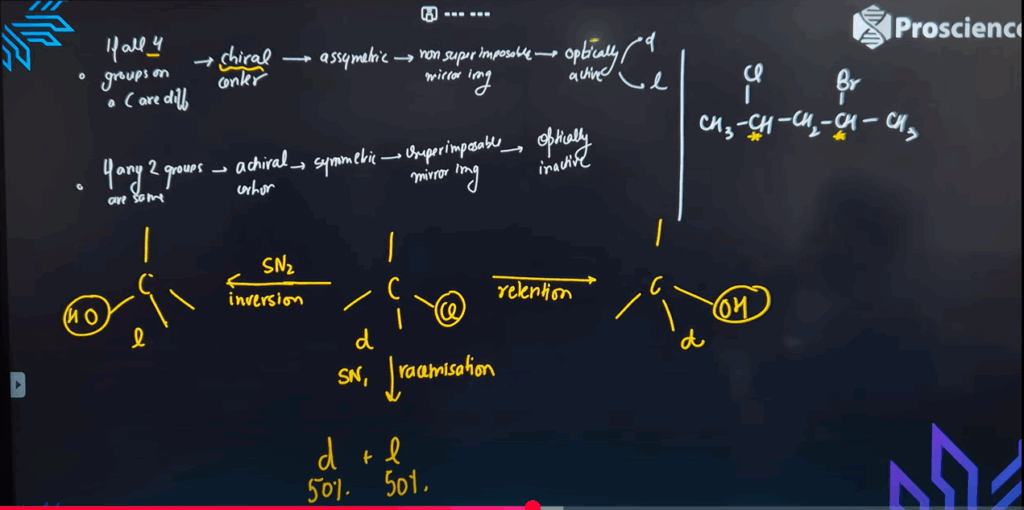 Proscience
If all 4 groups on a C are diff → chiral center → assymetric → non super imposable mirror img → optically active d l
If any 2 groups are same → achiral → symmetric → superimposable mirror img → optically inactive
Cl Br
CH3-CH-CH2-CH-CH3
* *
SN2
inversion
HO C
l
C Cl
d
retention
C OH
d
SN1 racemisation
d + l
50%. 50%.